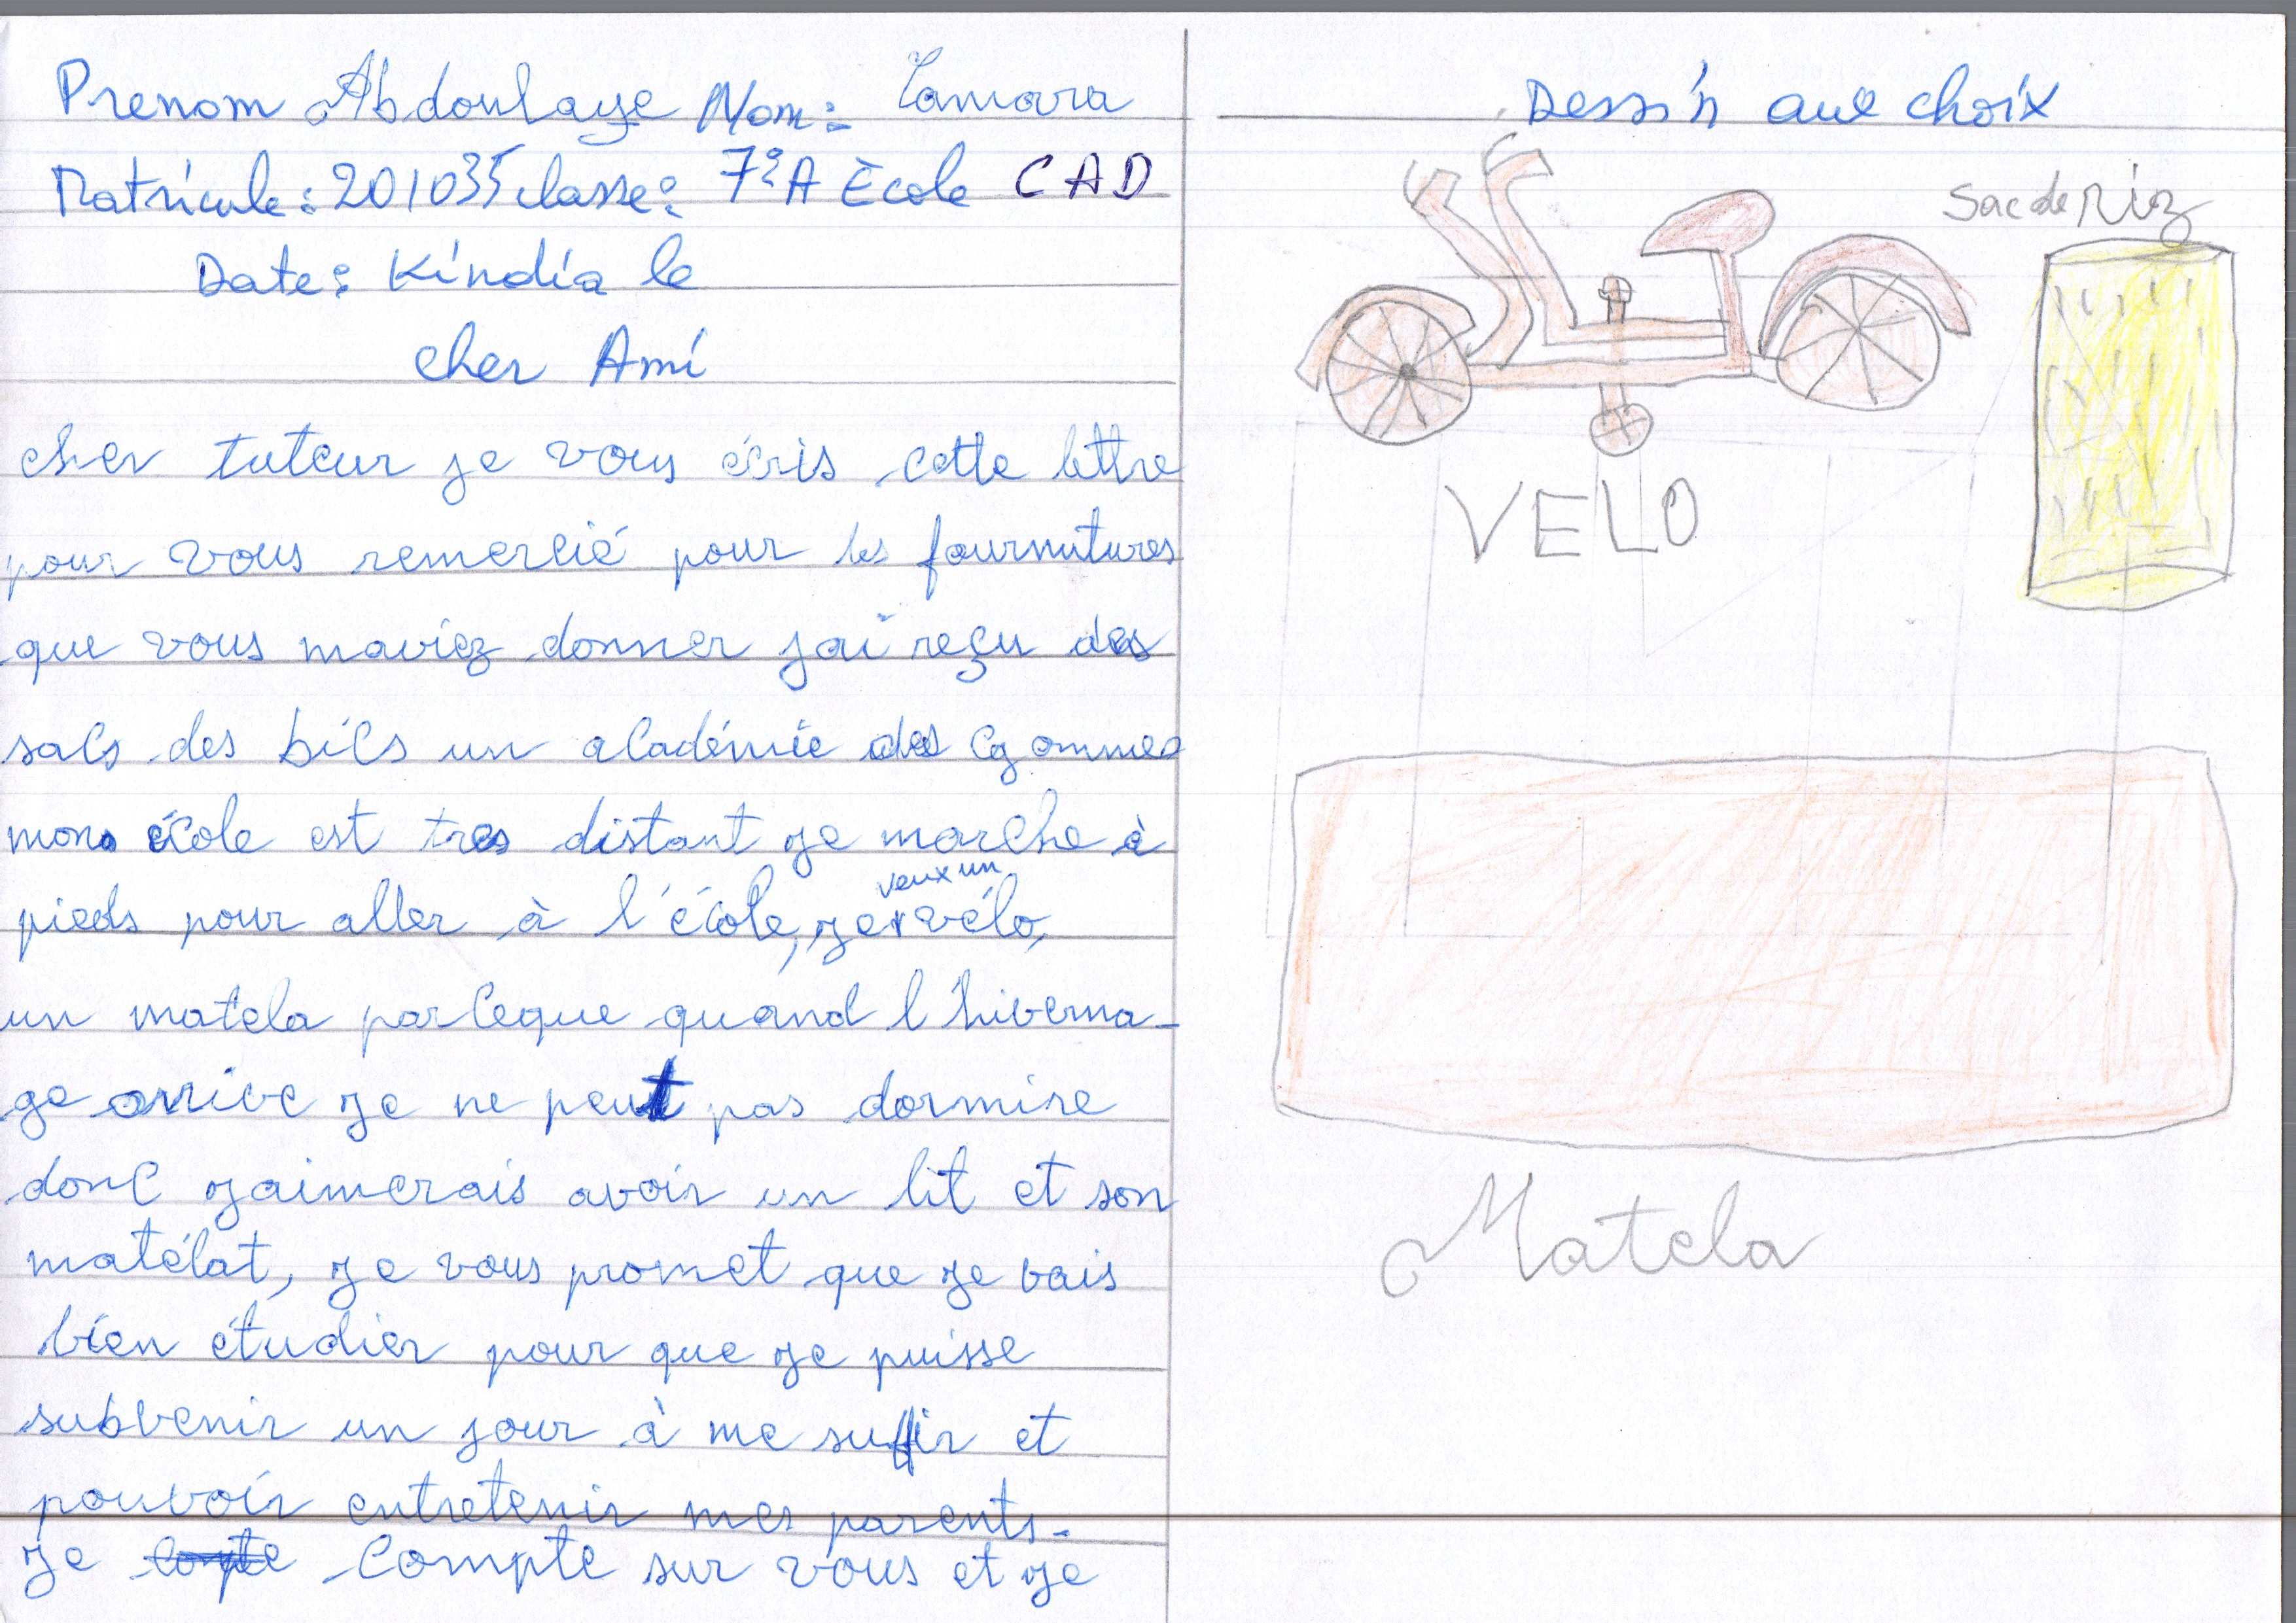 Prenom Abdoulaye Nom: Camara
Matricule: 201035 classe: 7ºA École CAD
Date: Kindia le
cher Ami
cher tuteur je vous écris cette lettre
pour vous remercié pour les fournutures
que vous maviez donner jai reçu des
sacs des bics un académie des gommes
mon école est tres distant je marche à
pieds pour aller à l'école, je veux un vélo,
un matela parceque quand l'hiverna-
ge arrive je ne peut pas dormire
donc jaimerais avoir un lit et son
matélat, je vous promet que je vais
bien étudier pour que je puisse
subvenir un jour à me suffir et
pouvoir entretenir mes parents.
Je compte sur vous et je
Dessin aux choix
Sac de Riz
VELO
Matela